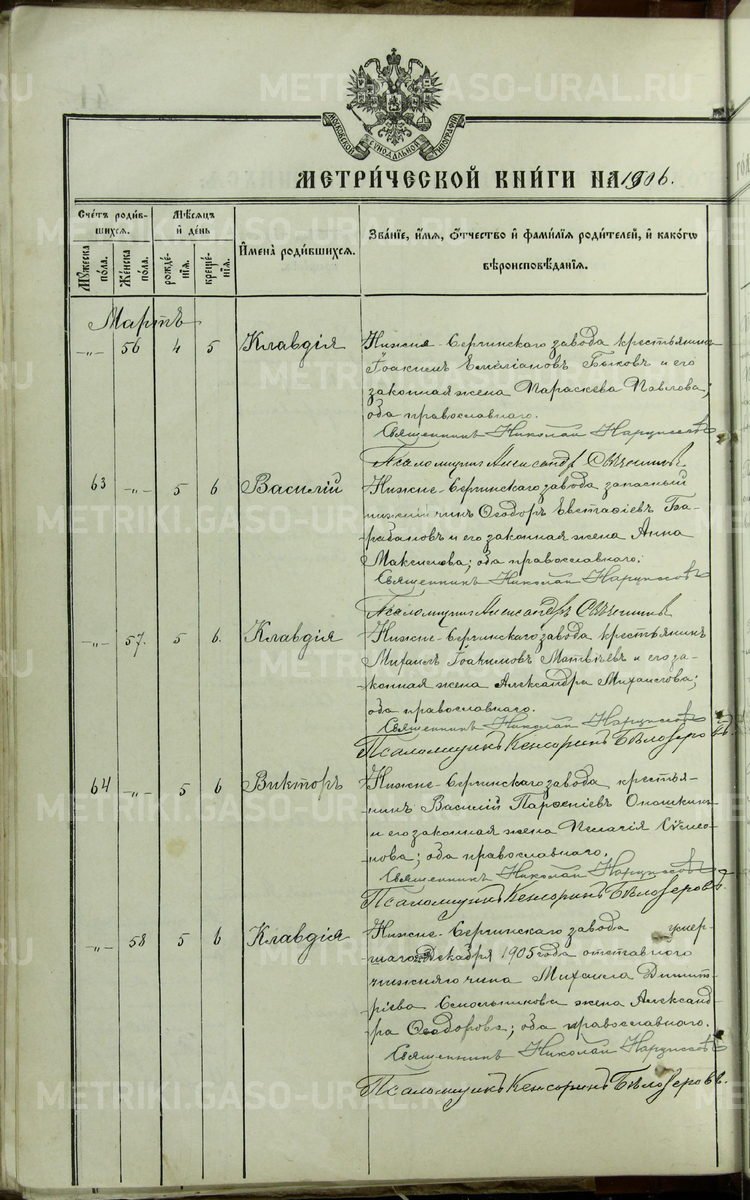 METRIKI.GASO-URAL.RU
МОСКОВСКОЙ СѴНОДАЛЬНОЙ ТИПОГРАФІИ
МЕТРИ́ЧЕСКОЙ КНИ́ГИ НА 1906.
Сче́тъ роди́вшихсѧ.
Мѣ́сѧцъ и҆ де́нь
И҆мена̀ роди́вшихсѧ.
Зва́нїе, и҆́мѧ, ѻ҆́тчество и҆ фами́лїѧ роди́телей, и҆ како́гѡ
вѣроисповѣ́данїѧ.
Мꙋ́жеска по́ла.
Же́нска по́ла.
рожде́нїѧ.
креще́нїѧ.
Мартъ
-„- 56 4 5 Клавдія Нижне-Сергинскаго завода крестьянинъ
Іоакимъ Емеліановъ Быковъ и его
законная жена Параскева Павлова;
оба православнаго.
Священникъ Николай Нарциссовъ
Псаломщикъ Александръ
63 -„- 5 6 Василій Нижне-Сергинскаго завода запасный
нижній чинъ Ѳеодоръ Евстафіевъ Ба-
рабановъ и его законная жена Анна
Максимова; оба православнаго.
Священникъ Николай Нарциссовъ
Псаломщикъ Александръ
-„- 57. 5 6. Клавдія Нижне-Сергинскаго завода крестьянинъ
Михаилъ Іоакимовъ Матвѣевъ и его за-
конная жена Александра Михаилова;
оба православнаго.
Священникъ Николай Нарциссовъ
Псаломщикъ Кенсоринъ Бѣлозеровъ.
64 -„- 5 6 Викторъ Нижне-Сергинскаго завода крестья-
нинъ Василій Парѳеніевъ Опошкинъ
и его законная жена Пелагія Сѵмео-
нова; оба православнаго.
Священникъ Николай Нарциссовъ
Псаломщикъ Кенсоринъ Бѣлозеровъ.
-„- 58 5 6 Клавдія Нижне-Сергинскаго завода умер-
шаго декабря 1905 года отставного
нижняго чина Михаила Димит-
ріева Смольникова жена Александ-
ра Ѳеодорова; оба православнаго.
Священникъ Николай Нарциссовъ
Псаломщикъ Кенсоринъ Бѣлозеровъ.